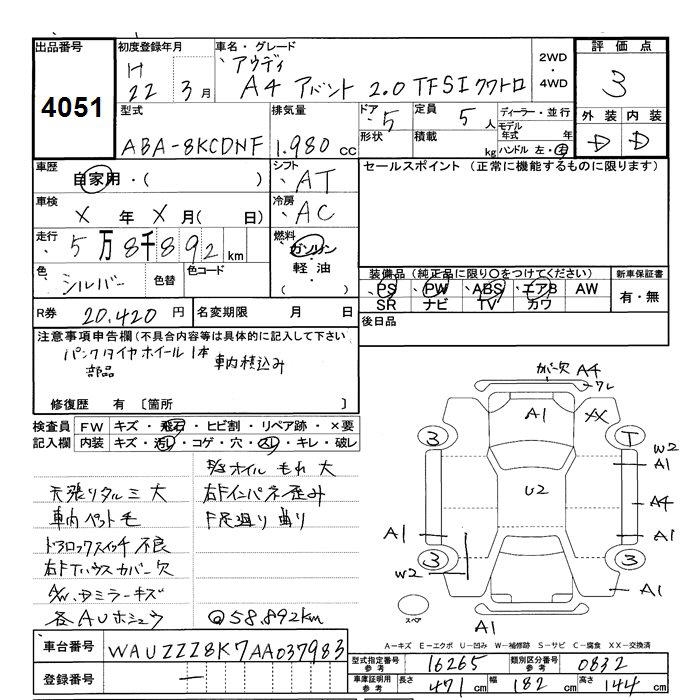 出品番号
4051
初度登録年月
H 22 年 3 月
車名・グレード
アウディ
A4 アバント 2.0 TFSI クワトロ
2WD
・
4WD
評価点
3
型式
ABA-8KCDNF
排気量
1.980 cc
ドア 5
形状
定員 5 人
積載 kg
ディーラー・並行
モデル年式 年
ハンドル 左・右
外装 内装
D D
車歴
自家用・( )
シフト
AT
セールスポイント (正常に機能するものに限ります)
車検
X 年 X 月( )
冷房
AC
走行
5万8千892 km
燃料
ガソリン
軽油
・( )
色
シルバー
色替
色コード
装備品 (純正品に限り○をつけてください)
PS PW ABS エアB AW
SR ナビ TV カワ
新車保証書
有・無
R券 20.420 円
名変期限 月 日
後日品
注意事項申告欄 (不具合内容等は具体的に記入して下さい
パンクタイヤホイール1本 車内積込み
部品
修復歴 有 〔箇所 〕
検査員
記入欄
FW キズ・飛石・ヒビ割・リペア跡・×要
内装 キズ・汚レ・コゲ・穴・スレ・キレ・破レ
ホイル もれ 大
天張りタルミ 大
右Fインパネ歪み
車内 ペット毛
下足廻り 曲り
ドアロックスイッチ 不良
右Fタイハウスカバー欠
A/W.ミラーキズ
各AUホシュウ
@58.892km
ガバー欠 A4
ワレ
A1
XX
3
T
W2
A1
U2
A4
A1
A1
3
3
W2
A1
A1
スペア
A-キズ E-エクボ U-凹み W-補修跡 S-サビ C-腐食 XX-交換済
車台番号
WAUZZZ8K7AA037983
登録番号
ー
型式指定番号
参考
16265
類別区分番号
参考
0832
車庫証明用
参考
長さ 471 cm 幅 182 cm 高さ 144 cm